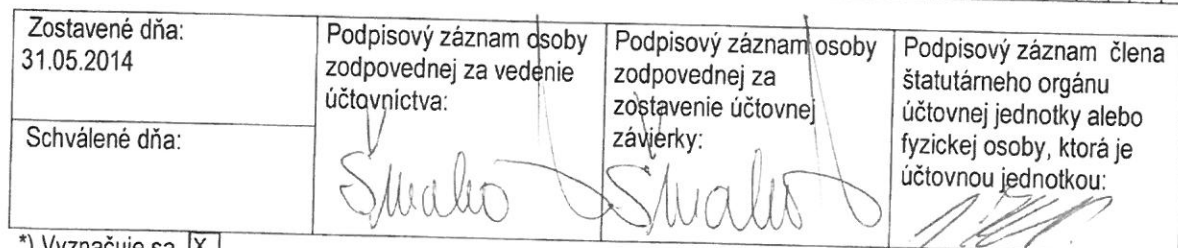 Zostavené dňa:
31.05.2014
Schválené dňa:
Podpisový záznam osoby
zodpovednej za vedenie
účtovníctva:
Podpisový záznam osoby
zodpovednej za
zostavenie účtovnej
závierky:
Podpisový záznam člena
štatutárneho orgánu
účtovnej jednotky alebo
fyzickej osoby, ktorá je
účtovnou jednotkou:
*) Vyznačuje sa X